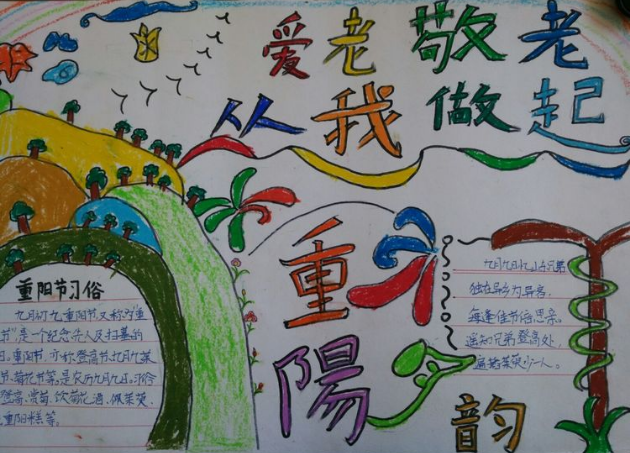 爱老敬老
从我做起
重陽
韵
重阳节习俗
九月初九重阳节又称
节是一个纪念先人及扫墓的
日,重阳节,亦称登高节、九月九
节、菊花节等,是农历九月九日。
登高、赏菊、饮菊花酒、佩茱萸、
重阳糕等。
九月九日
独在异乡为异客,
每逢佳节倍思亲。
遥知兄弟登高处,
遍插茱萸少一人。